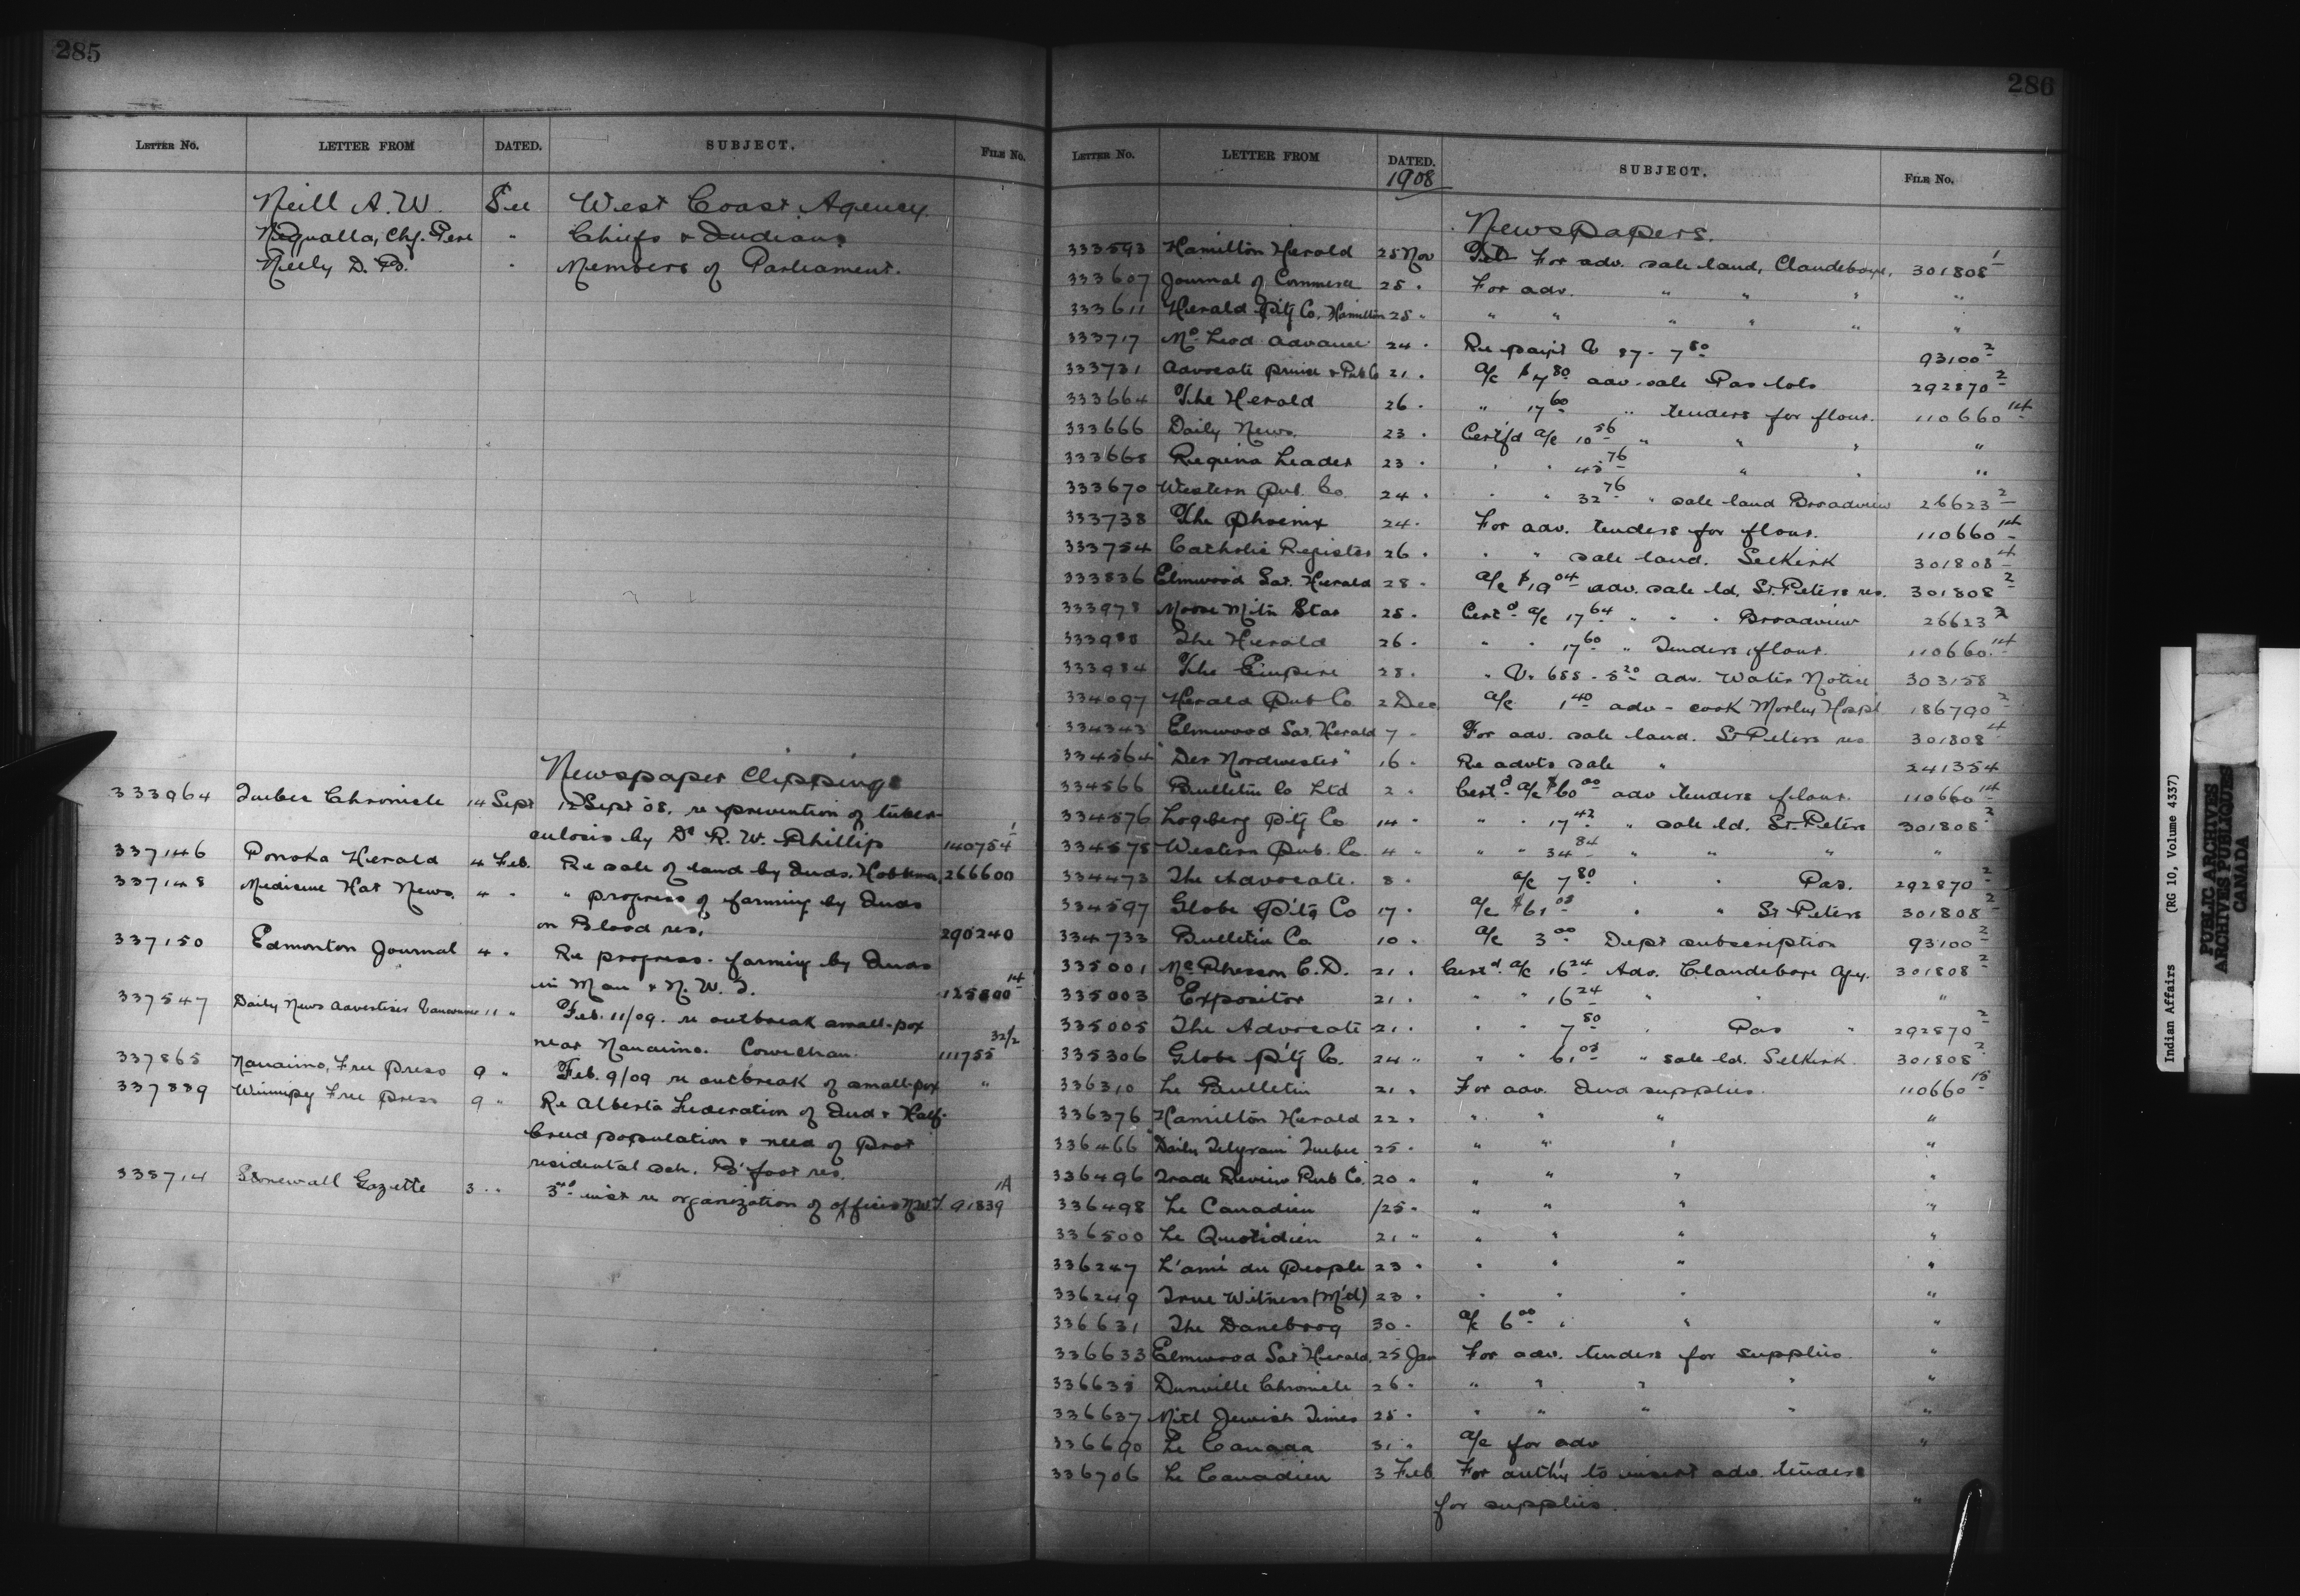 285
LETTER NO. LETTER FROM DATED. SUBJECT. FILE NO.
Neill A. W. See West Coast Agency.
Nequalla, Chf. Pere " Chiefs & Indians
Neely D. B. " Members of Parliament.
Newspaper Clippings
333964 Quebec Chronicle 14 Sept 12 Sept 08. re prevention of tuber-
culosis by Dr R. W. Phillip 140754 1
337146 Ponoka Herald 4 Feb. Re sale of land by Inds. Hobbema, 266600
337148 Medicine Hat News. 4 " " progress of farming by Inds
on Blood res. 290240
337150 Edmonton Journal 4 " Re progress farming by Inds
in Man & N. W. T. 125800 14
337547 Daily News Advertiser Vancouver 11 " Feb. 11/09. re outbreak small-pox
near Nanaimo. Cowichan. 111755 32/2
337865 Nanaimo, Free Press 9 " Feb. 9/09 re outbreak of small-pox "
337839 Winnipeg Free Press 9 " Re Alberta Federation of Ind & Half-
breed population & need of Prot
residental sch. B'foot res.
338714 Stonewall Gazette 3 " 3rd inst re organization of offices N.W.T. 91839 1A
286
LETTER NO. LETTER FROM DATED. SUBJECT. FILE NO.
1908
Newspapers.
333593 Hamilton Herald 25 Nov For adv. sale land, Clandeboye, 301808 1
333607 Journal of Commerce 25 " For adv. " " " "
333611 Herald P't'g Co. Hamilton 25 " " " " " " "
333717 McLeod Advance 24 " Re pay't V 87 - 7 80 93100 2
333731 Advocate Print & Pub Co 21 " a/c $7 80 adv. sale Pas lots 292870 2
333664 The Herald 26 " " 17 60 " tenders for flour. 110660 14
333666 Daily News. 23 " Certf'd a/c 10 56 " " " "
333668 Regina Leader 23 " " " 43 76 " " "
333670 Western Pub. Co. 24 " " " 32 76 " sale land Broadview 26623 2
333738 The Phoenix 24 " For adv. tenders for flour. 110660 14
333754 Catholic Register 26 " " " sale land. Selkirk 301808 4
333836 Elmwood Sat. Herald 28 " a/c $19 04 adv. sale ld, St. Peters res. 301808 2
333978 Moose Mt'n Star 25 " Cert'd a/c 17 64 " " " Broadview 26623 2
333988 The Herald 26 " " " 17 60 " Tenders flour. 110660 14
333984 The Empire 28 " " V. 688 - 5 20 adv. Water Notice 303158
334097 Herald Pub Co 2 Dec a/c 1 40 adv - cook Morley Hosp'l 186790 2
334343 Elmwood Sat. Herald 7 " For adv. sale land. St Peters res 301808 4
334564 "Der Nordwesten" 16 " Re advts sale " 241354
334566 Bulletin Co Ltd 2 " Cert'd a/c $60 00 adv tenders flour. 110660 14
334576 Logberg P't'g Co 14 " " " 17 42 " sale ld. St. Peters 301808 2
334578 Western Pub. Co. 4 " " " 34 84 " " " "
334473 The Advocate. 8 " a/c 7 80 " " Pas. 292870 2
334597 Globe P't'g Co 17 " a/c $61 03 " " St Peters 301808 2
334733 Bulletin Co 10 " a/c 3 00 Dept subscription 93100 2
335001 McPherson C. D. 21 " Cert'd a/c 16 24 Adv. Clandeboye Agy. 301808 2
335003 Expositor 21 " " " 16 24 " " "
335005 The Advocate 21 " " " 7 80 " Pas " 292870 2
335306 Globe P't'g Co. 24 " " " 61 03 " sale ld. Selkirk. 301808 2
336310 Le Bulletin 21 " For adv. Ind supplies. 110660 15
336376 Hamilton Herald 22 " " " " "
336466 "Daily Telegram Quebec 25 " " " " "
336496 Trade Review Pub Co. 20 " " " " "
336498 Le Canadien 25 " " " " "
336500 Le Quotidien 21 " " " " "
336247 L'ami du People 23 " " " " "
336249 True Witness (M'd) 23 " " " " "
336631 The Danebrog 30 " a/c 6 00 " " "
336633 Elmwood Sat Herald. 25 Jan For adv. tenders for supplies "
336635 Dunville Chronicle 26 " " " " " "
336637 Nit'l Jewish Times 25 " " " " " "
336690 Le Canada 31 " a/c for adv "
336706 Le Canadien 3 Feb For auth'y to insert adv. tenders
for supplies. "
Indian Affairs (RG 10, Volume 4337)
PUBLIC ARCHIVES
ARCHIVES PUBLIQUES
CANADA